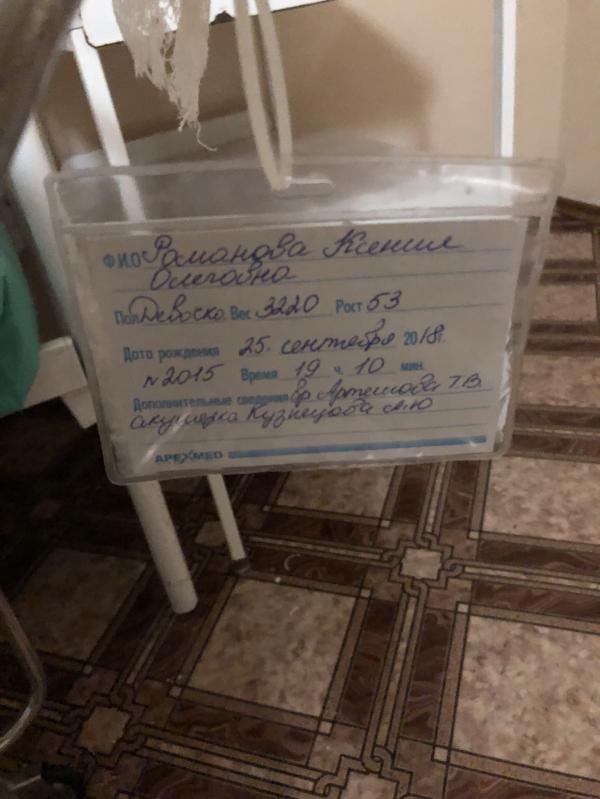 Ф.И.О Романова Ксения
Олеговна
Пол Девочка Вес 3220 Рост 53
Дата рождения 25. сентября 2018г.
№2015 Время 19 ч. 10 мин.
Дополнительные сведения вр Артемова Т.В.
акушерка Кузнецова А.Ю
APEXMED